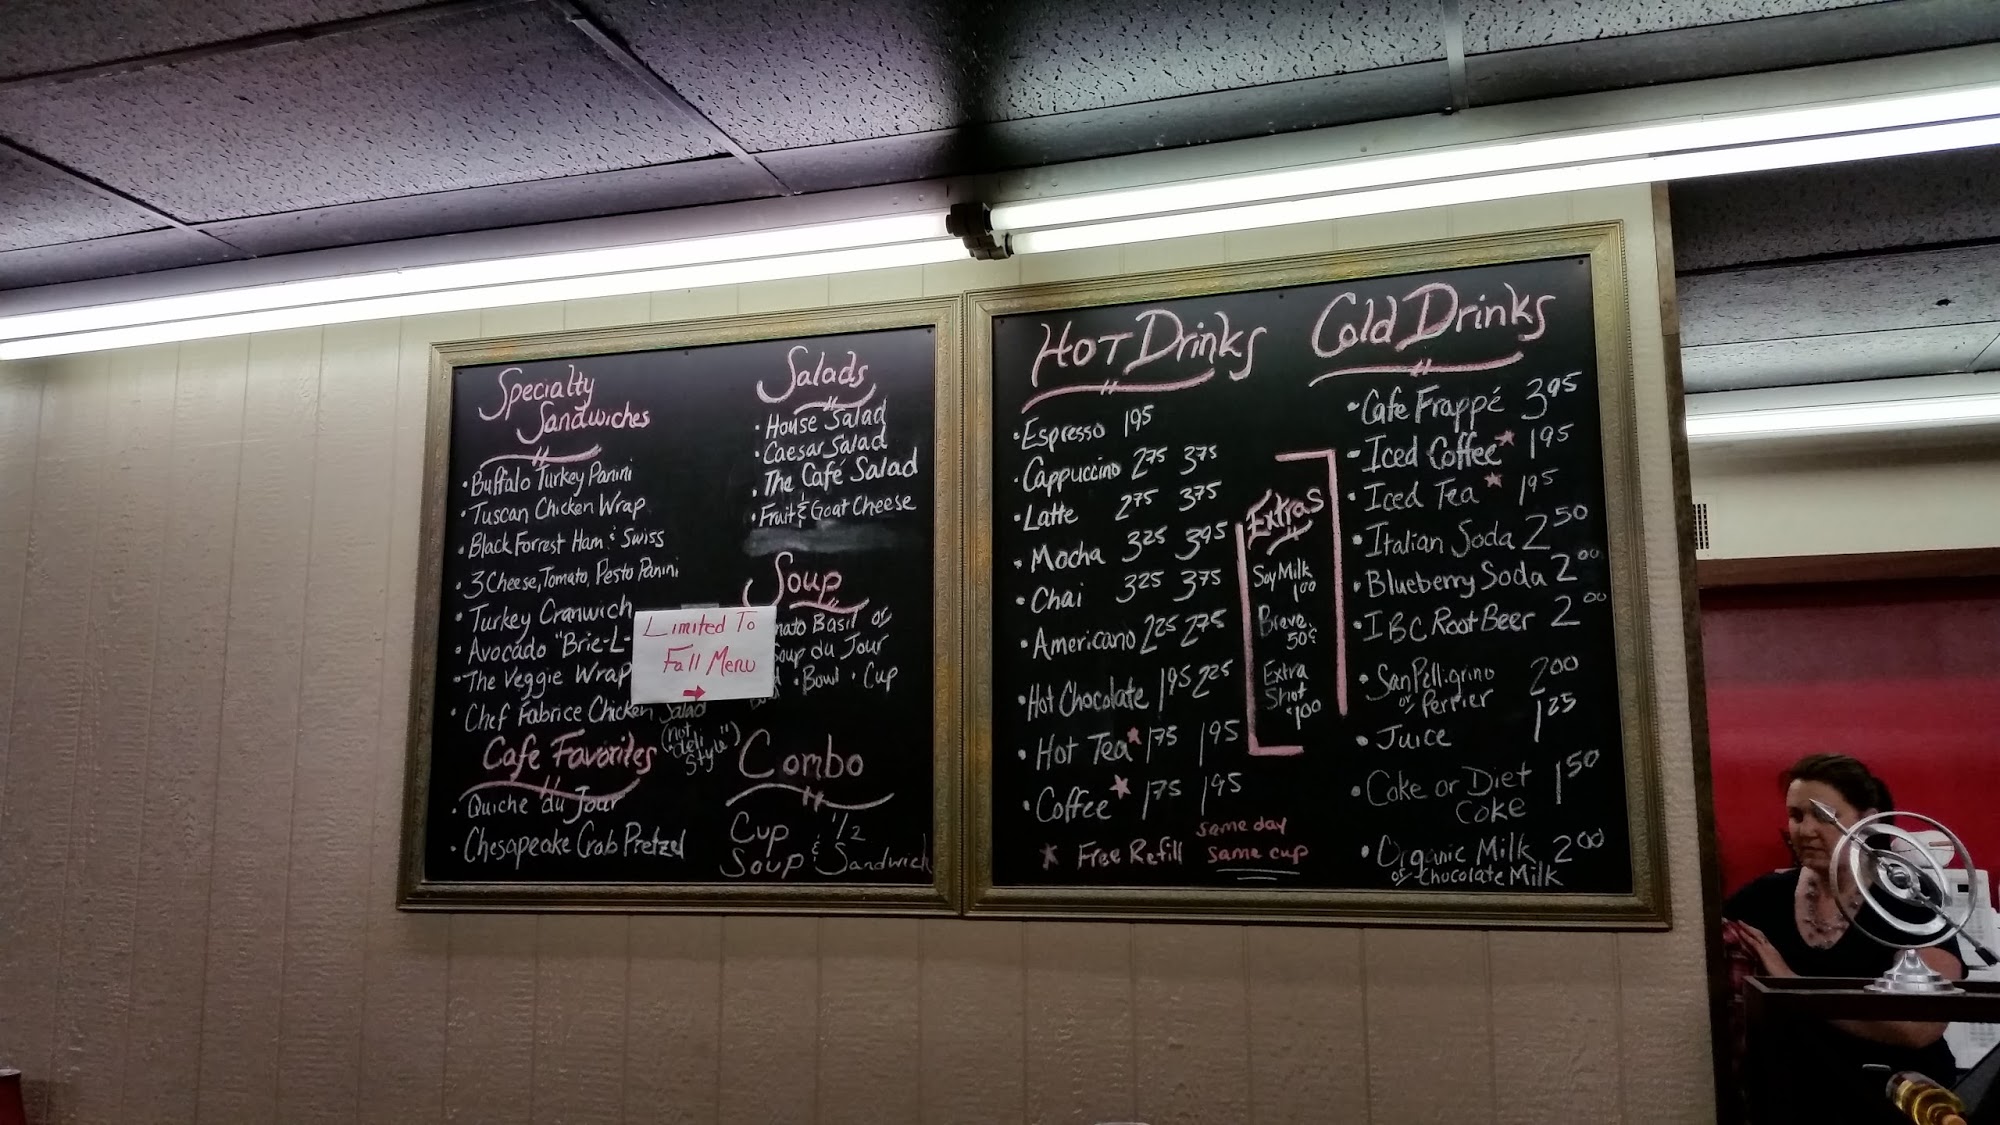 Specialty
Sandwiches
• Buffalo Turkey Panini
• Tuscan Chicken Wrap
• Black Forrest Ham & Swiss
• 3 Cheese, Tomato, Pesto Panini
• Turkey Cranwich
• Avocado "Brie-L-
• The Veggie Wrap
• Chef Fabrice Chicken Salad
(not "deli style")
Cafe Favorites
• Quiche du Jour
• Chesapeake Crab Pretzel
Salads
• House Salad
• Caesar Salad
• The Café Salad
• Fruit & Goat Cheese
Soup
mato Basil or
oup du Jour
• Bowl • Cup
Limited To
Fall Menu
→
Combo
Cup & 1/2
Soup Sandwich
Hot Drinks
• Espresso 1.95
• Cappuccino 2.75 3.75
• Latte 2.75 3.75
• Mocha 3.25 3.95
• Chai 3.25 3.75
• Americano 2.25 2.75
• Hot Chocolate 1.95 2.25
• Hot Tea* 1.75 1.95
• Coffee* 1.75 1.95
* Free Refill same day
same cup
Extras
Soy Milk
1.00
Breve
50¢
Extra
Shot
$1.00
Cold Drinks
• Cafe Frappé 3.95
• Iced Coffee* 1.95
• Iced Tea* 1.95
• Italian Soda 2.50
• Blueberry Soda 2.00
• IBC Root Beer 2.00
• San Pelligrino 2.00
or Perrier
• Juice 1.25
• Coke or Diet 1.50
Coke
• Organic Milk 2.00
or Chocolate Milk